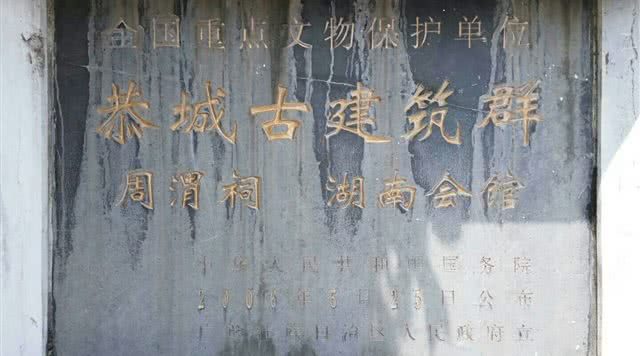 全国重点文物保护单位
恭城古建筑群
周渭祠 湖南会馆
中华人民共和国国务院
2006年5月25日公布
广西壮族自治区人民政府立